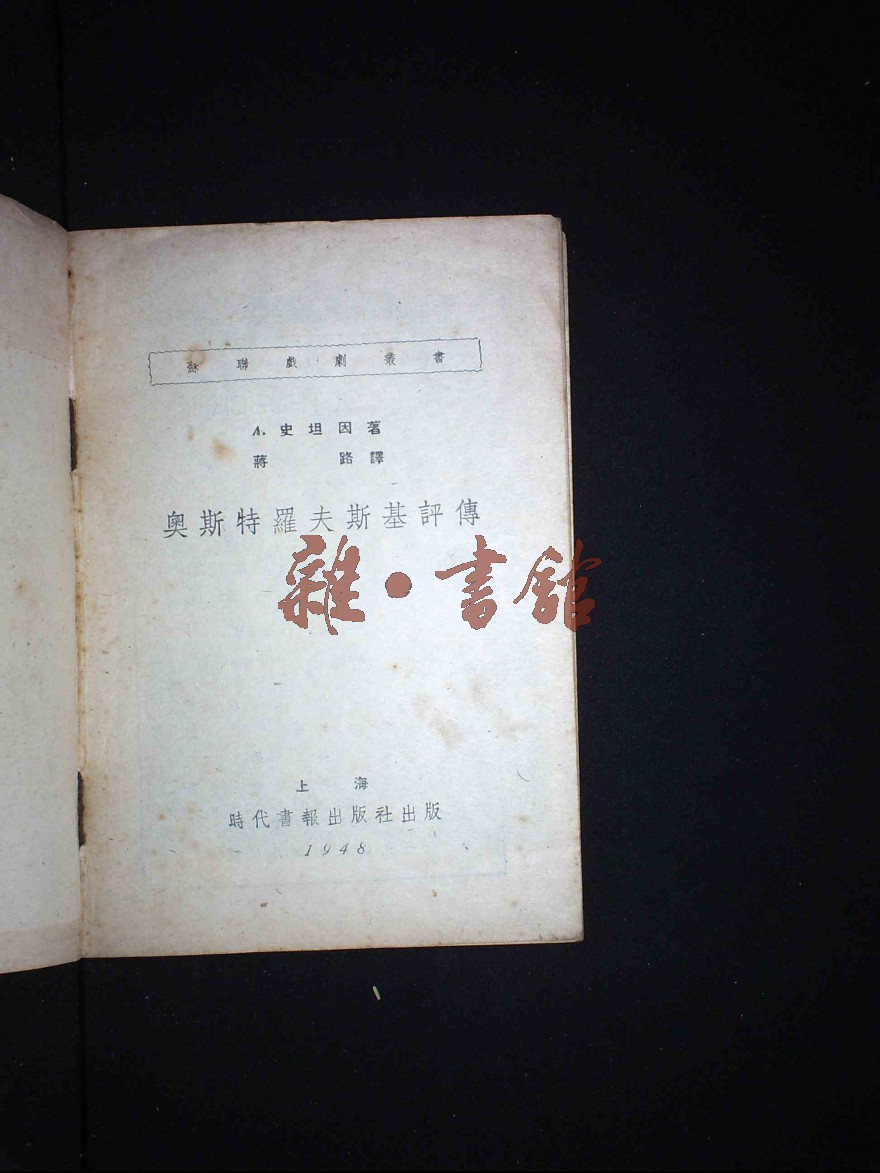 蘇聯戲劇叢書
A. 史坦因著
蔣路譯
奧斯特羅夫斯基評傳
雜·書館
上海
時代書報出版社出版
1948